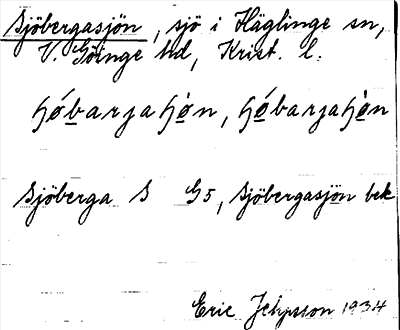 Sjöbergasjön, sjö i Häglinge sn,
V. Göinge hd, Krist. l.
ɧöbarjaɧòn, ɧöbarjaɧòn
Sjöberga S G5, Sjöbergasjön bek
Eric 1934